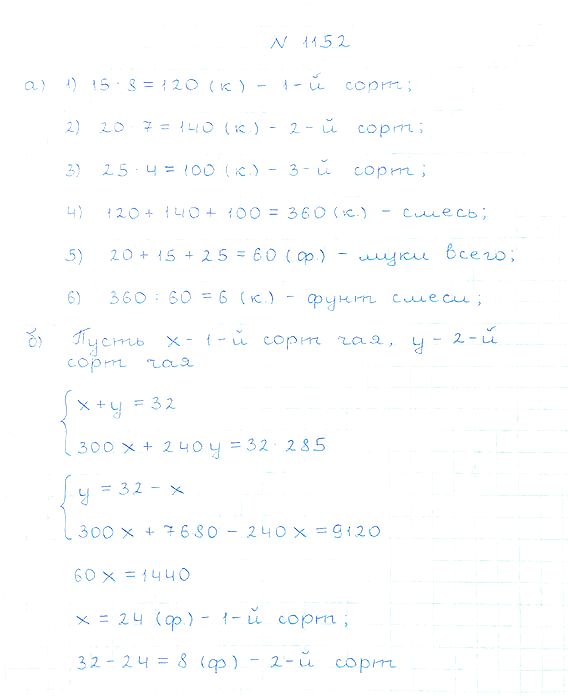 N 1152
а) 1) 15 · 8 = 120 (к) - 1-й сорт;
2) 20 7 = 140 (к.) - 2-й сорт;
3) 25 · 4 = 100 (к.) - 3-й сорт;
4) 120 + 140 + 100 = 360 (к.) - смесь;
5) 20 + 15 + 25 = 60 (ф.) - муки всего;
6) 360 : 60 = 6 (к.) - фунт смеси;
б) Пусть x - 1-й сорт чая, y - 2-й
сорт чая
x + y = 32
300 x + 240 y = 32 · 285
y = 32 - x
300 x + 7680 - 240 x = 9120
60 x = 1440
x = 24 (ф.) - 1-й сорт;
32 - 24 = 8 (ф) - 2-й сорт